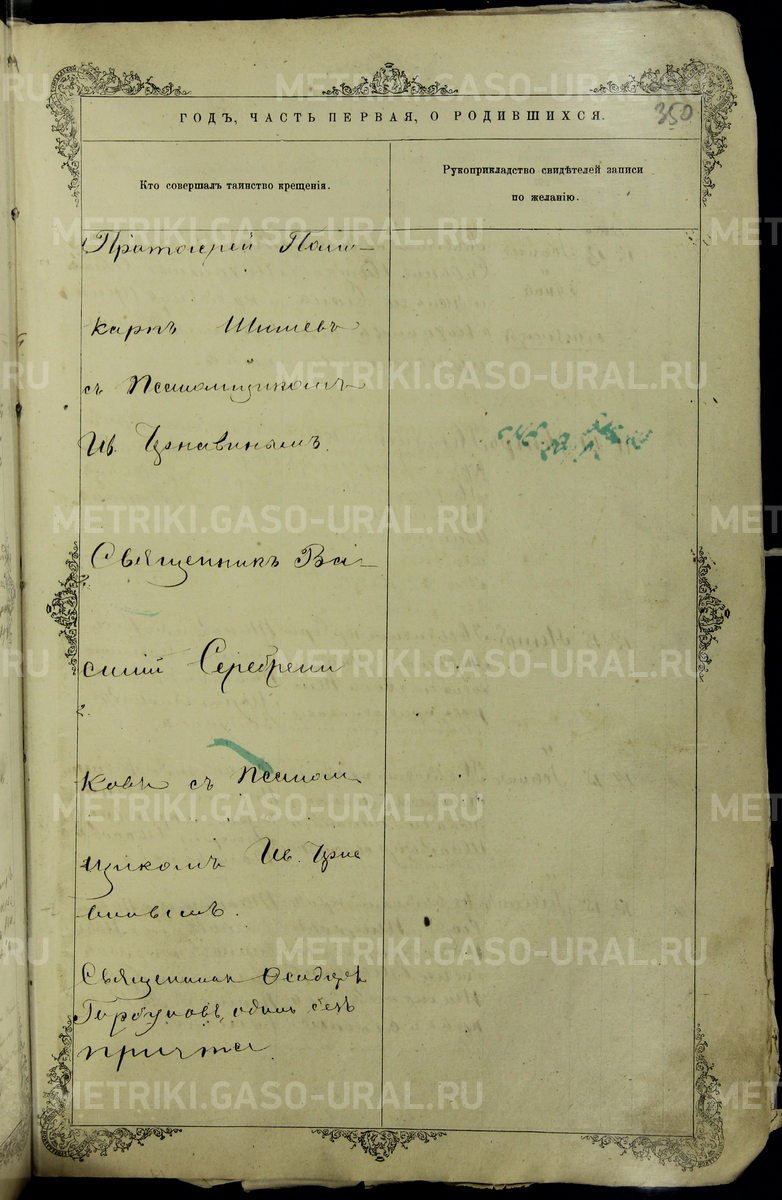 350
ГОДЪ, ЧАСТЬ ПЕРВАЯ, О РОДИВШИХСЯ.
Кто совершалъ таинство крещенія.
Рукоприкладство свидѣтелей записи
по желанію.
Протоіерей Поли-
карпъ Шишевъ
съ Псаломщикомъ
Ив.
Священникъ Ва-
силій Серебрени
ковъ съ Псалом
щикомъ Ив.
Священникъ Ѳеодоръ
Горбуновъ, одинъ безъ
причта
METRIKI.GASO-URAL.RU